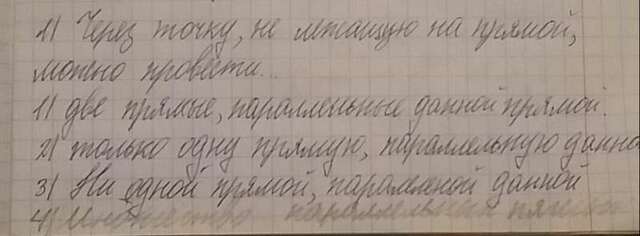 1) Через точку, не лежащую на прямой,
можно провести...
1) две прямые, параллельные данной прямой.
2) только одну прямую, параллельную данно
3) Ни одной прямой, паралленой данной
4) Множество параллельных